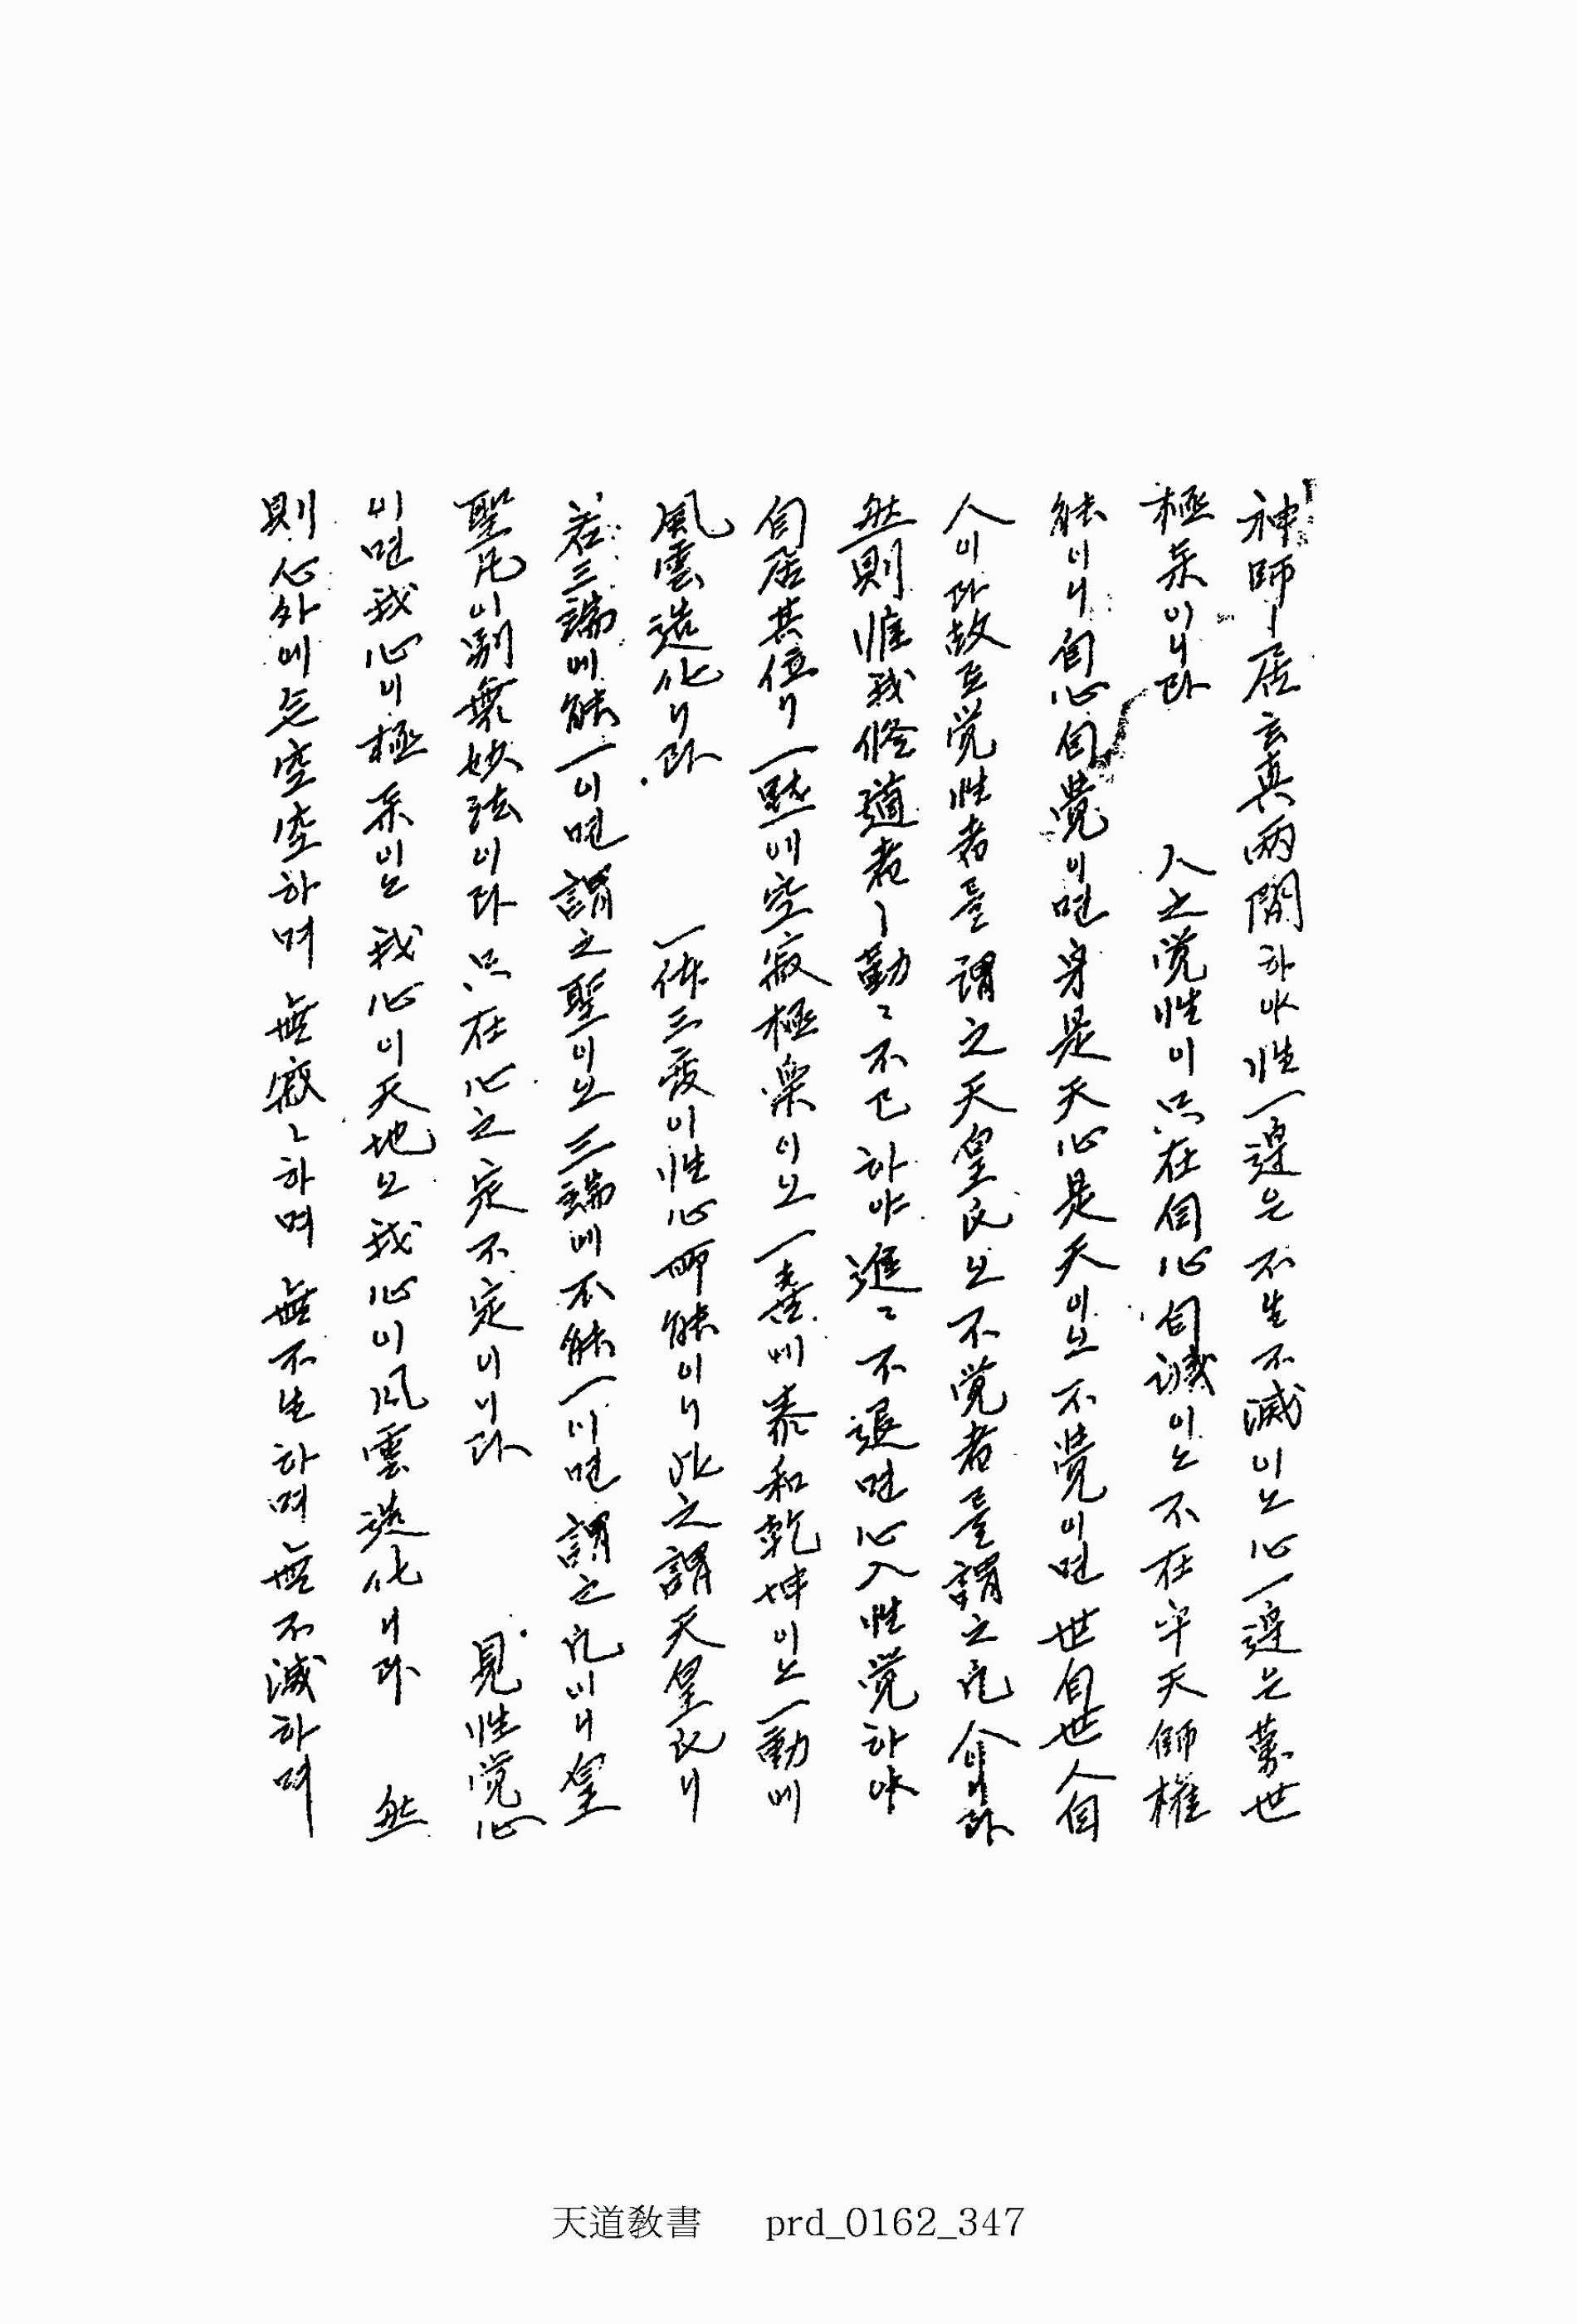 神師ㅣ居玄眞兩間하야性一邊은不生不滅이오心一邊은萬世
極樂이니라 人之覚性이只在自心自誠이오不在乎天師權
能이니自心自覺이면身是天心是天이오不覺이면世自世人自
人이라故로覚性者를謂之天皇氏오不覚者를謂之凡人이니라
然則惟我修道者ㅣ勤〻不已하야進〻不退면心入性覚하야
自居其位니一默에空寂極樂이오一喜에泰和乾坤이오一動에
風雲造化니라 一体三変이性心所能이니此之謂天皇氏니
若三端에能一이면謂之聖이오三端에不能一이면謂之凡이니皇
聖凡이別無妙法이라只在心之定不定이니라 見性覚心
이면我心이極樂이오我心이天地오我心이風雲造化니라 然
則心外에는空空하며無寂〻하며無不生하며無不滅하며
天道敎書 prd_0162_347